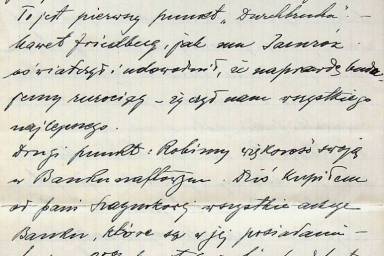 To jest pierwszy punkt „Durchbruchu". –
nawet Friedberg, jak mu Jamróz
oświadczył i udowodnił, że naprawdę budu-
jemy rurociąg – życzył nam wszystkiego
najlepszego.
Drugi punkt: Robimy większość swoją
w Banku naftowym. Dziś kupiłem
od pani wszystkie akcje
Banku, które są w jej posiadaniu –